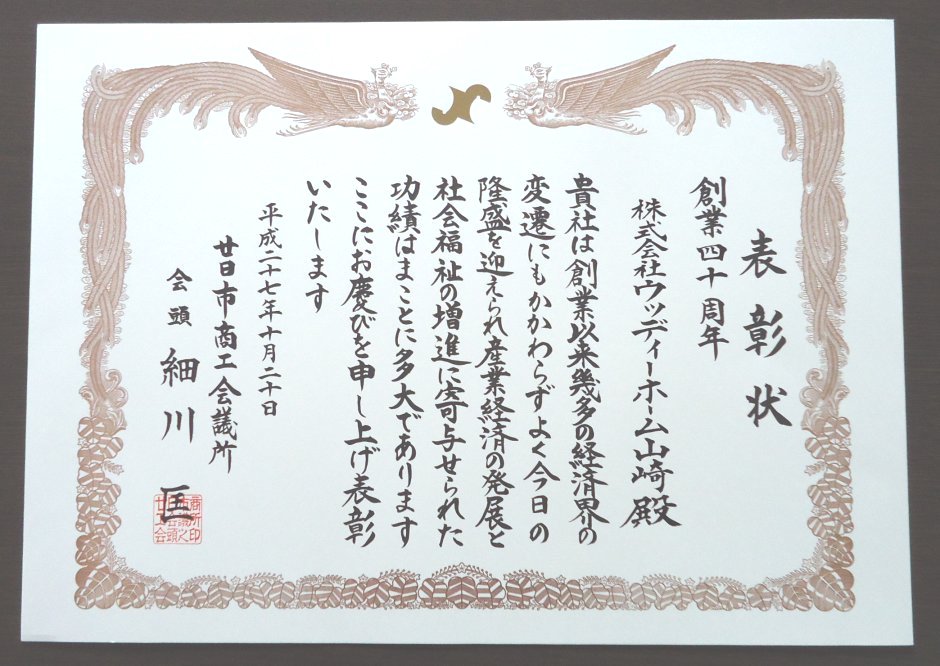 表彰状
創業四十周年
株式会社ウッディーホーム山崎殿
貴社は創業以来幾多の経済界の
変遷にもかかわらずよく今日の
隆盛を迎えられ産業経済の発展と
社会福祉の増進に寄与せられた
功績はまことに多大であります
ここにお慶びを申し上げ表彰
いたします
平成二十七年十月二十日
廿日市商工会議所
会頭 細川 匡